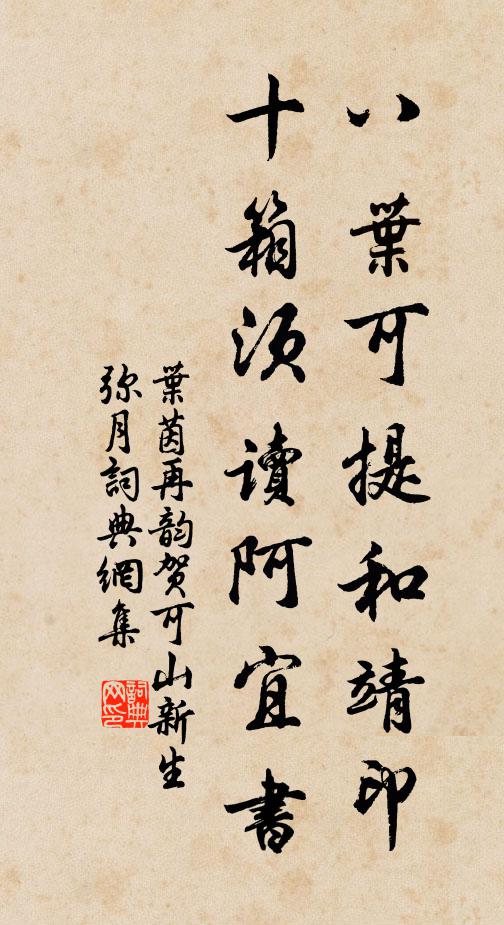 八葉可提和靖印
十箱須讀阿宜書
葉茵再韵贺可山新生
弥月詞典網集
詞典
网印